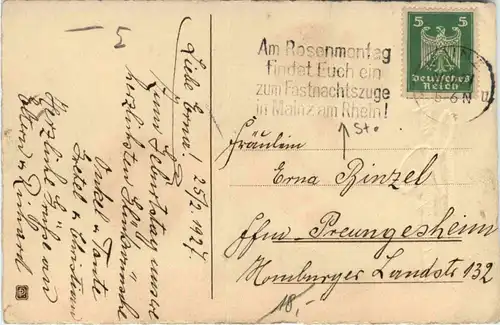 5
Liebe Erna! 25/2. 1927.
Zum Geburtstag unsere
herzlichsten Glückwünsche
Onkel u. Tante
Christian
Herzliche Grüße an
Eltern u. Richard
Am Rosenmontag
findet Euch ein
zum Fastnachtszuge
in Mainz am Rhein!
5 5
Deutsches
Reich
5-6N
Sto
Fräulein
Erna Binzel
Ffm-Preungesheim
Homburger Landstr 132
18,-